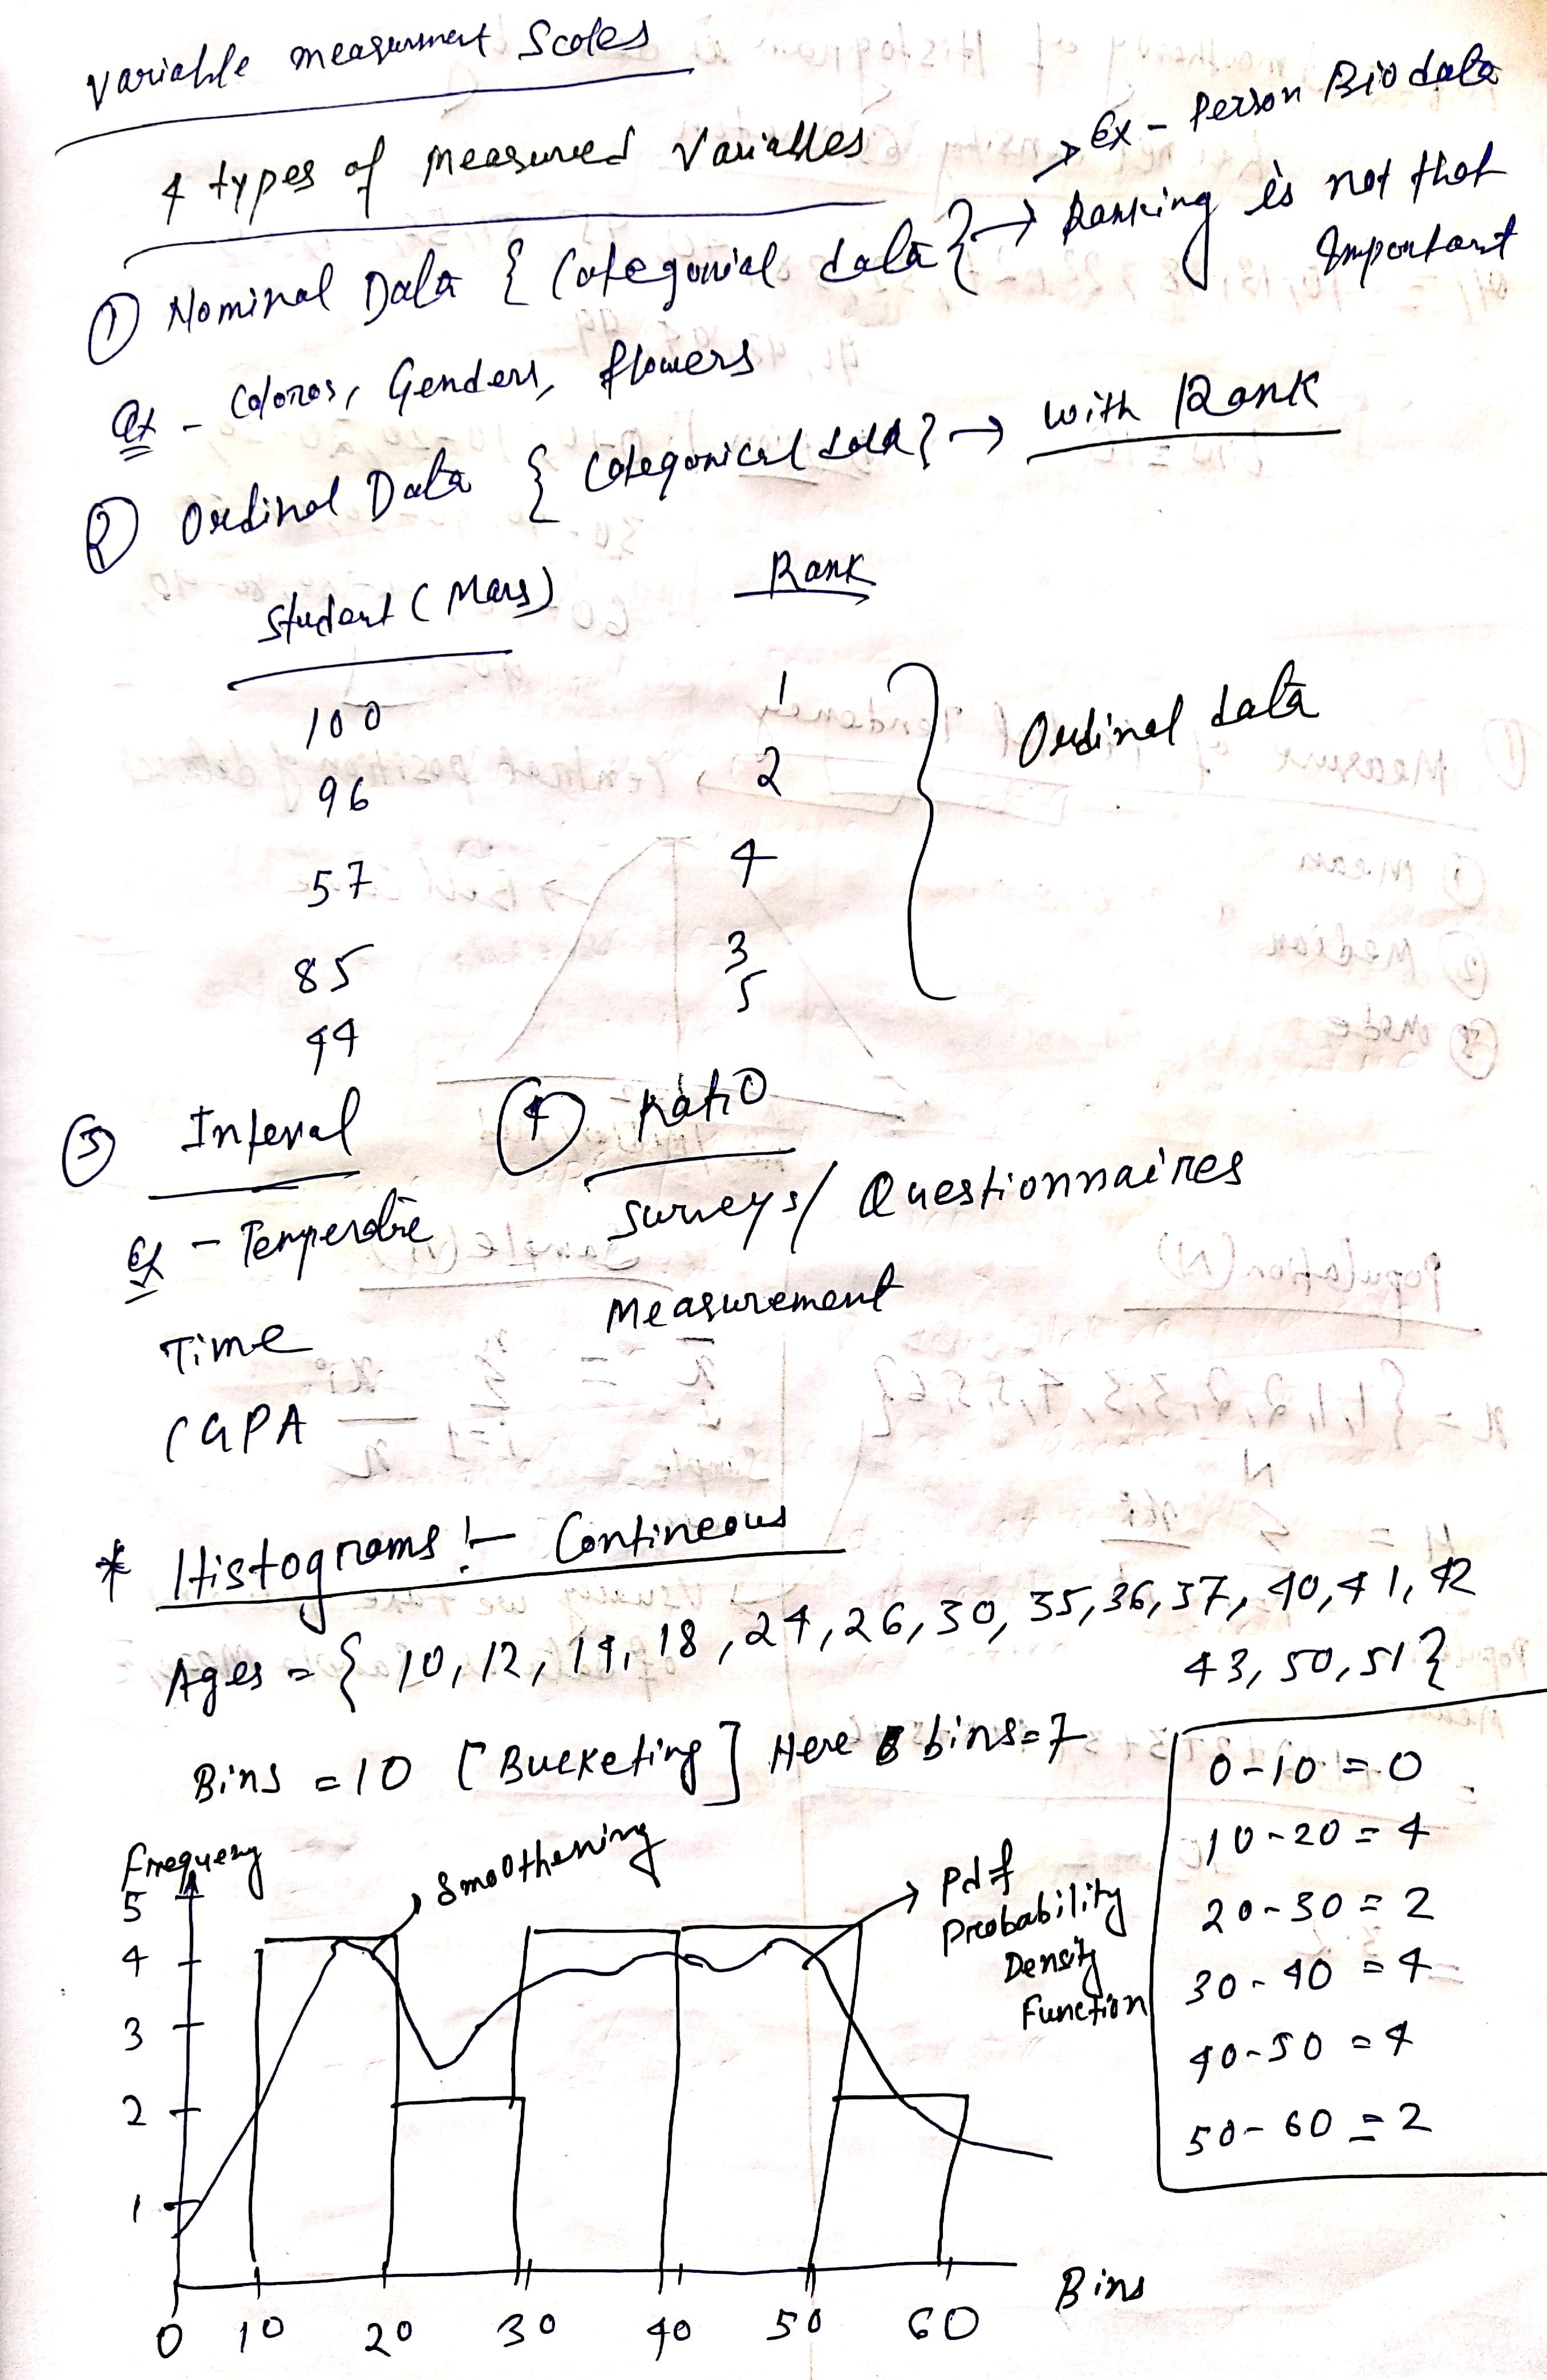 Variable measurment Scales
4 types of Measured Variables
→ Ex - Person Bio data
① Nominal Data { Categorial data } → Ranking is not that
Important
Ex - Colores, Genders, flowers
② Ordinal Data { Categorical data } → with Rank
Student (Mars) Rank
100 1
96 2
57 4
85 3
44 5
Ordinal data
③ Interval ④ Ratio
Ex - Temperatre Surveys/ Questionnaires
Time Measurement
CGPA
* Histograms :- Contineous
Ages = { 10, 12, 14, 18, 24, 26, 30, 35, 36, 37, 40, 41, 42
43, 50, 51 }
Bins = 10 [ Bucketing ] Here bins = 7
0-10 = 0
10-20 = 4
20-30 = 2
30-40 = 4
40-50 = 4
50-60 = 2
Frequency
Smoothening
Pdf
Probability
Density
Function
5
4
3
2
1
0 10 20 30 40 50 60
Bins